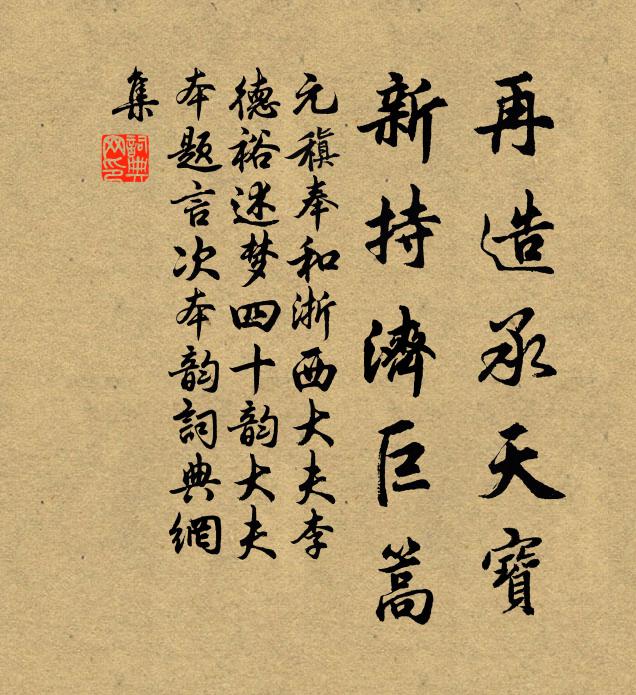 再造承天寶
新持濟巨篙
元稹奉和浙西大夫李
德裕述梦四十韵大夫
本题言次本韵詞典網
集
詞典
网印